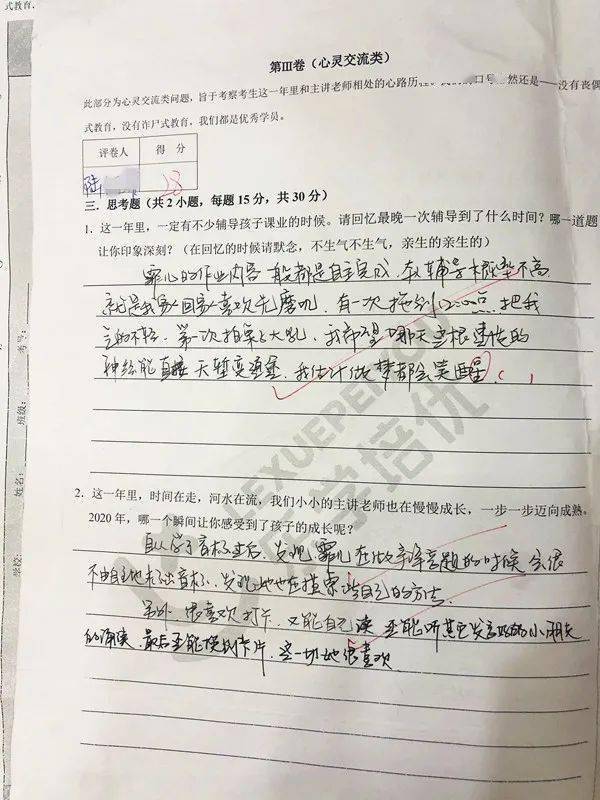 式教育，
第Ⅲ卷（心灵交流类）
此部分为心灵交流类问题，旨于考察考生这一年里和主讲老师相处的心路历 口号 然还是——没有丧偶
式教育，没有诈尸式教育，我们都是优秀学员。
评卷人 得 分
陆 28
三．思考题（共 2 小题，每题 15 分，共 30 分）
1. 这一年里，一定有不少辅导孩子课业的时候。请回忆最晚一次辅导到了什么时间？哪一道题
让你印象深刻？（在回忆的时候请默念，不生气不生气，亲生的亲生的）
霏心的作业内容一般都是自主完成，辅导概率不高
就是我家回家喜欢先磨叽，有一次拖到12:00点，把我
气的不轻，第一次拍桌大吼，我希望哪天当根遗传的
神经能直接天暂变通，我估计做梦都会笑醒
LEXUEPEIYOU
乐学培优
2. 这一年里，时间在走，河水在流，我们小小的主讲老师也在慢慢成长，一步一步迈向成熟。
2020 年，哪一个瞬间让你感受到了孩子的成长呢？
自从学了音标之后，发现霏儿在做辛题的时候会很
不由自主地标出音标，发现她也在摸索出自己的方法
另外，很喜欢打卡，又能自己读，至能听其它发言好的小朋友
的诵读，最后至能换到卡片，这一切她很喜欢
学校：
姓名：
班级：
考号：